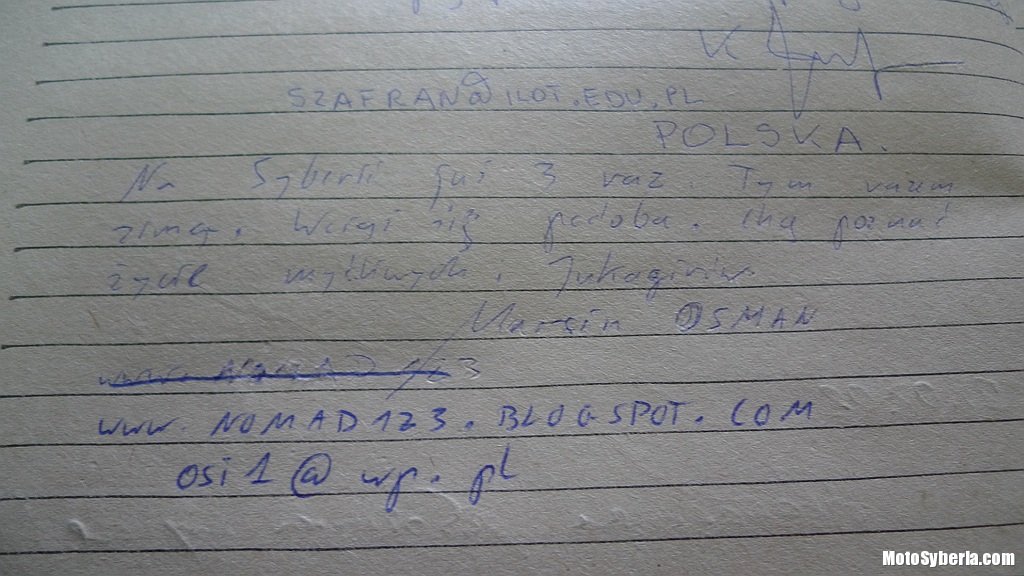 SZAFRAN@ILOT.EDU.PL
POLSKA.
Na Syberii już 3 raz. Tym razem
zimą. Wciąż się podoba. Chcę poznać
życie myśliwych. Jukagirów
Marcin OSMAN
www.NOMAD123
www.NOMAD123.BLOGSPOT.COM
osi1@wp.pl
MotoSyberia.com